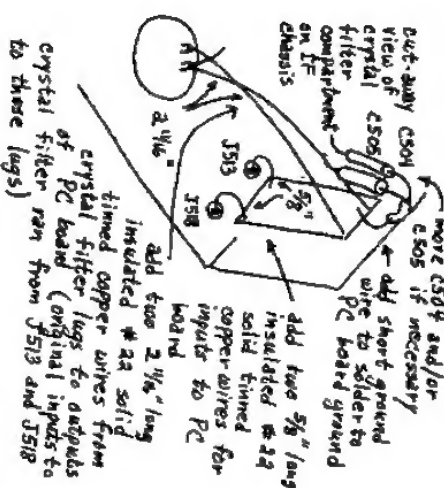 cut-away
view of
crystal
filter
compartment
on IF
chassis
C504
C505
move C504 and/or
C505 if necessary
add short ground
wire to solder to
PC board ground
2 11/16"
J513
J518
5/8"
add two 5/8" long
insulated #22
solid tinned
copper wires for
inputs to PC
board
add two 2 11/16" long
insulated #22 solid
tinned copper wires from
crystal filter lugs to outputs
of PC board (original inputs to
crystal filter ran from J513 and J518
to these lugs)